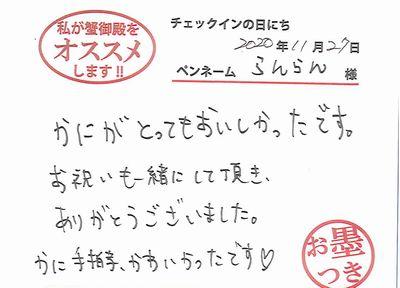 私が蟹御殿を
オススメ
します!!
チェックインの日にち
2020年11月27日
ペンネーム らんらん 様
かにがとってもおいしかったです。
お祝いも一緒にして頂き、
ありがとうございました。
かに手拍子、かわいかったです♡
お墨
つき